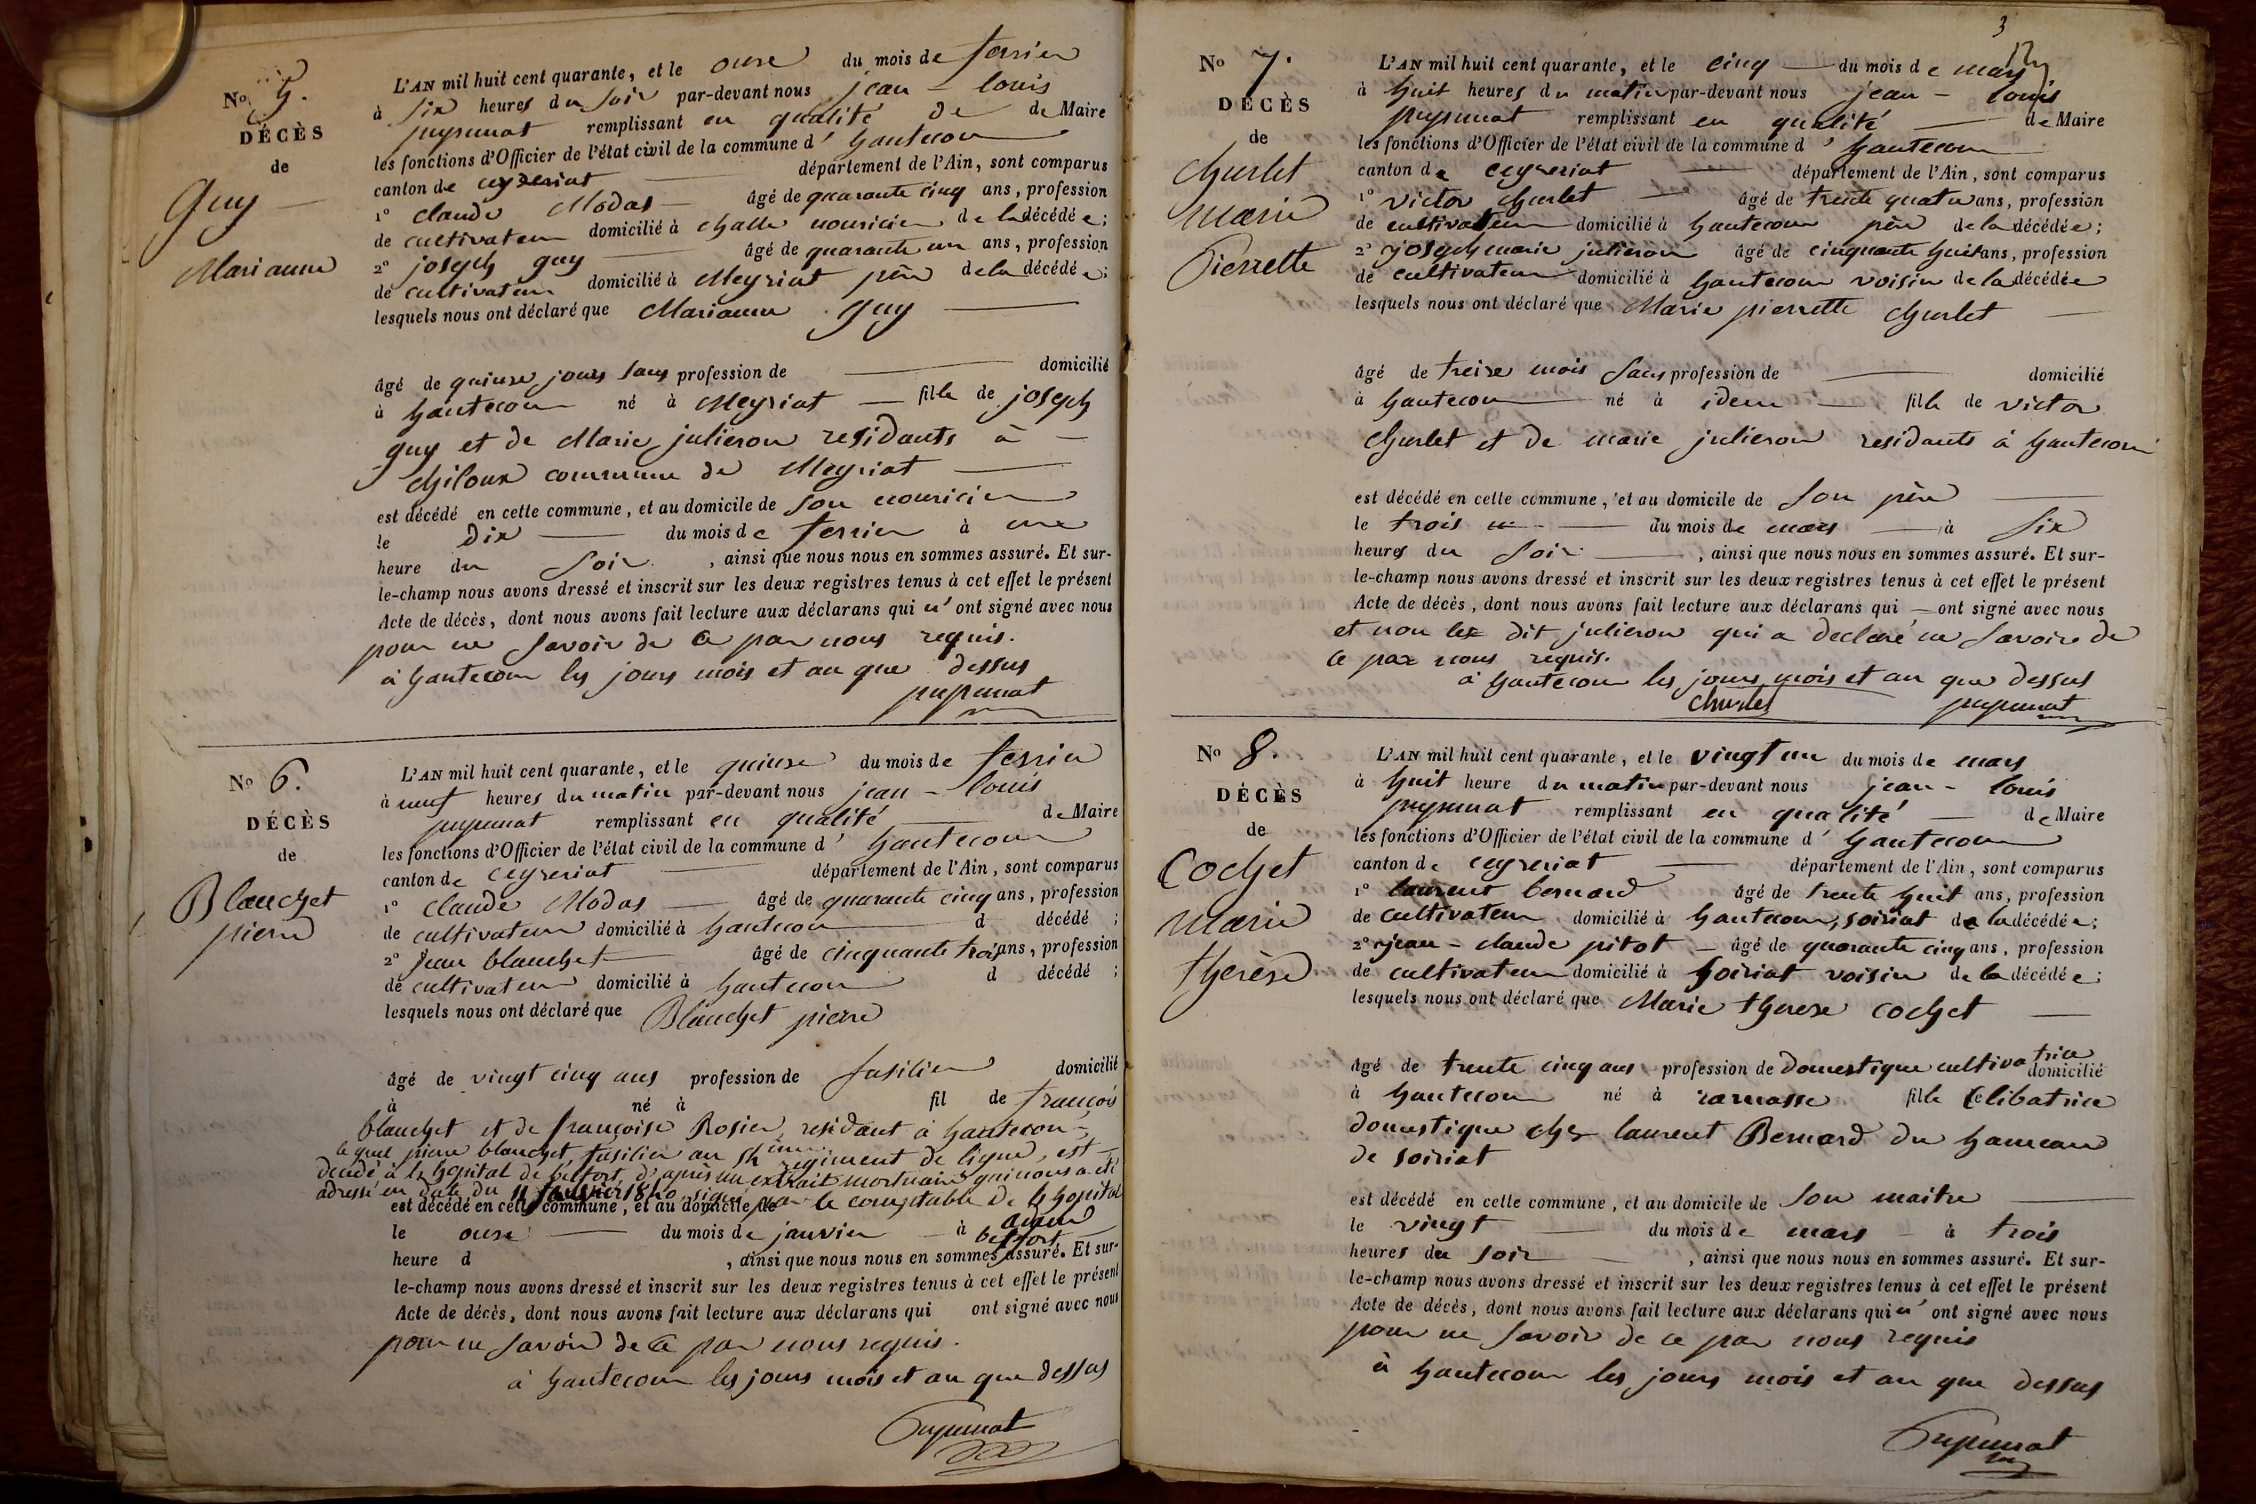 No 5.
DÉCÈS
de
Guy
Marianne
L'AN mil huit cent quarante, et le onse du mois de fevrier
à six heures du soir par-devant nous jean - louis
pupunat remplissant en qualité de de Maire
les fonctions d'Officier de l'état civil de la commune d' hautecour
canton de ceyzeriat département de l'Ain, sont comparus
1° claude Modas âgé de quarante cinq ans, profession
de cultivateur domicilié à challe nouricier de la décédée;
2° joseph guy âgé de quarante un ans, profession
de cultivateur domicilié à Meyriat père de la décédée;
lesquels nous ont déclaré que Marianne guy
âgé de quinse jours sans profession de domicilié
à hautecour né à Meyriat fille de joseph
guy et de Marie julieron residants à
chiloux commune de Meyriat
est décédé en cette commune, et au domicile de son nouricier
le dix du mois de fevrier à une
heure du soir, ainsi que nous nous en sommes assuré. Et sur-
le-champ nous avons dressé et inscrit sur les deux registres tenus à cet effet le présent
Acte de décès, dont nous avons fait lecture aux déclarans qui n'ont signé avec nous
pour ne savoir de ce par nous requis.
à hautecour les jours mois et an que dessus
pupunat
No 6.
DÉCÈS
de
Blanchet
pierre
L'AN mil huit cent quarante, et le quinse du mois de fevrier
à neuf heures du matin par-devant nous jean - louis
pupunat remplissant en qualité de Maire
les fonctions d'Officier de l'état civil de la commune d' hautecour
canton de ceyzeriat département de l'Ain, sont comparus
1° claude Modas âgé de quarante cinq ans, profession
de cultivateur domicilié à hautecour d décédé ;
2° jean blanchet âgé de cinquante trois ans, profession
de cultivateur domicilié à hautecour d décédé ;
lesquels nous ont déclaré que Blanchet pierre
âgé de vingt cinq ans profession de fusilier domicilié
à né à fil de françois
blanchet et de françoise Rosier, residant à hautecour,
le quel pierre blanchet, fusilier au regiment de ligne, est
décédé à l'hopital de belfort, d'après un extrait mortuaire qui nous a été
adressé en date du 11 janvier 1840 signé par le comptable de l'hopital
est décédé en cette commune, et au domicile de
le onse du mois de janvier à belfort
heure d , ainsi que nous nous en sommes assuré. Et sur-
le-champ nous avons dressé et inscrit sur les deux registres tenus à cet effet le présent
Acte de décès, dont nous avons fait lecture aux déclarans qui ont signé avec nous
pour ne savoir de ce par nous requis.
à hautecour les jours mois et an que dessus
Pupunat
3
No 7.
DÉCÈS
de
churlet
marie
Pierrette
L'AN mil huit cent quarante, et le cinq du mois de mars
à huit heures du matin par-devant nous jean - louis
pupunat remplissant en qualité de Maire
les fonctions d'Officier de l'état civil de la commune d' hautecour
canton de ceyzeriat département de l'Ain, sont comparus
1° victor churlet âgé de trente quatre ans, profession
de cultivateur domicilié à hautecour père de la décédée;
2° joseph marie julieron âgé de cinquante huit ans, profession
de cultivateur domicilié à hautecour voisin de la décédée
lesquels nous ont déclaré que Marie pierrette churlet
âgé de treize mois sans profession de domicilié
à hautecour né à idem fille de victor
churlet et de marie julieron residants à hautecour
est décédé en cette commune, et au domicile de son père
le trois du mois de mars à six
heures du soir, ainsi que nous nous en sommes assuré. Et sur-
le-champ nous avons dressé et inscrit sur les deux registres tenus à cet effet le présent
Acte de décès, dont nous avons fait lecture aux déclarans qui ont signé avec nous
et non le dit julieron qui a declaré ne savoir de
ce par nous requis.
à hautecour les jours mois et an que dessus
churlet pupunat
No 8.
DÉCÈS
de
Cochet
marie
therèse
L'AN mil huit cent quarante, et le vingt un du mois de mars
à huit heure du matin par-devant nous jean - louis
pupunat remplissant en qualité de Maire
les fonctions d'Officier de l'état civil de la commune d' hautecour
canton de ceyzeriat département de l'Ain, sont comparus
1° laurent bernard âgé de trente huit ans, profession
de cultivateur domicilié à hautecour, soiriat de la décédée;
2° jean - claude pitot âgé de quarante cinq ans, profession
de cultivateur domicilié à soiriat voisin de la décédée;
lesquels nous ont déclaré que Marie therese cochet
âgé de trente cinq ans profession de domestique cultivatrice domicilié
à hautecour né à ramasse fille célibatrice
domestique chez laurent Bernard du hameau
de soiriat
est décédé en cette commune, et au domicile de son maitre
le vingt du mois de mars à trois
heures du soir, ainsi que nous nous en sommes assuré. Et sur-
le-champ nous avons dressé et inscrit sur les deux registres tenus à cet effet le présent
Acte de décès, dont nous avons fait lecture aux déclarans qui n'ont signé avec nous
pour ne savoir de ce par nous requis
à hautecour les jours mois et an que dessus
Pupunat